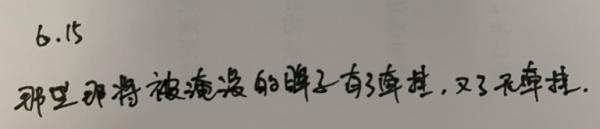 6.15
那里即将被淹没的眸子有了牵挂，又了无牵挂.